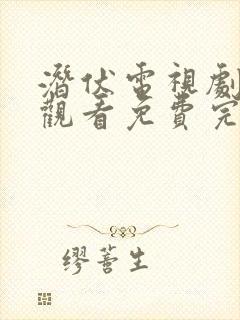 潛伏電視劇
觀看免費完
繆蓍生